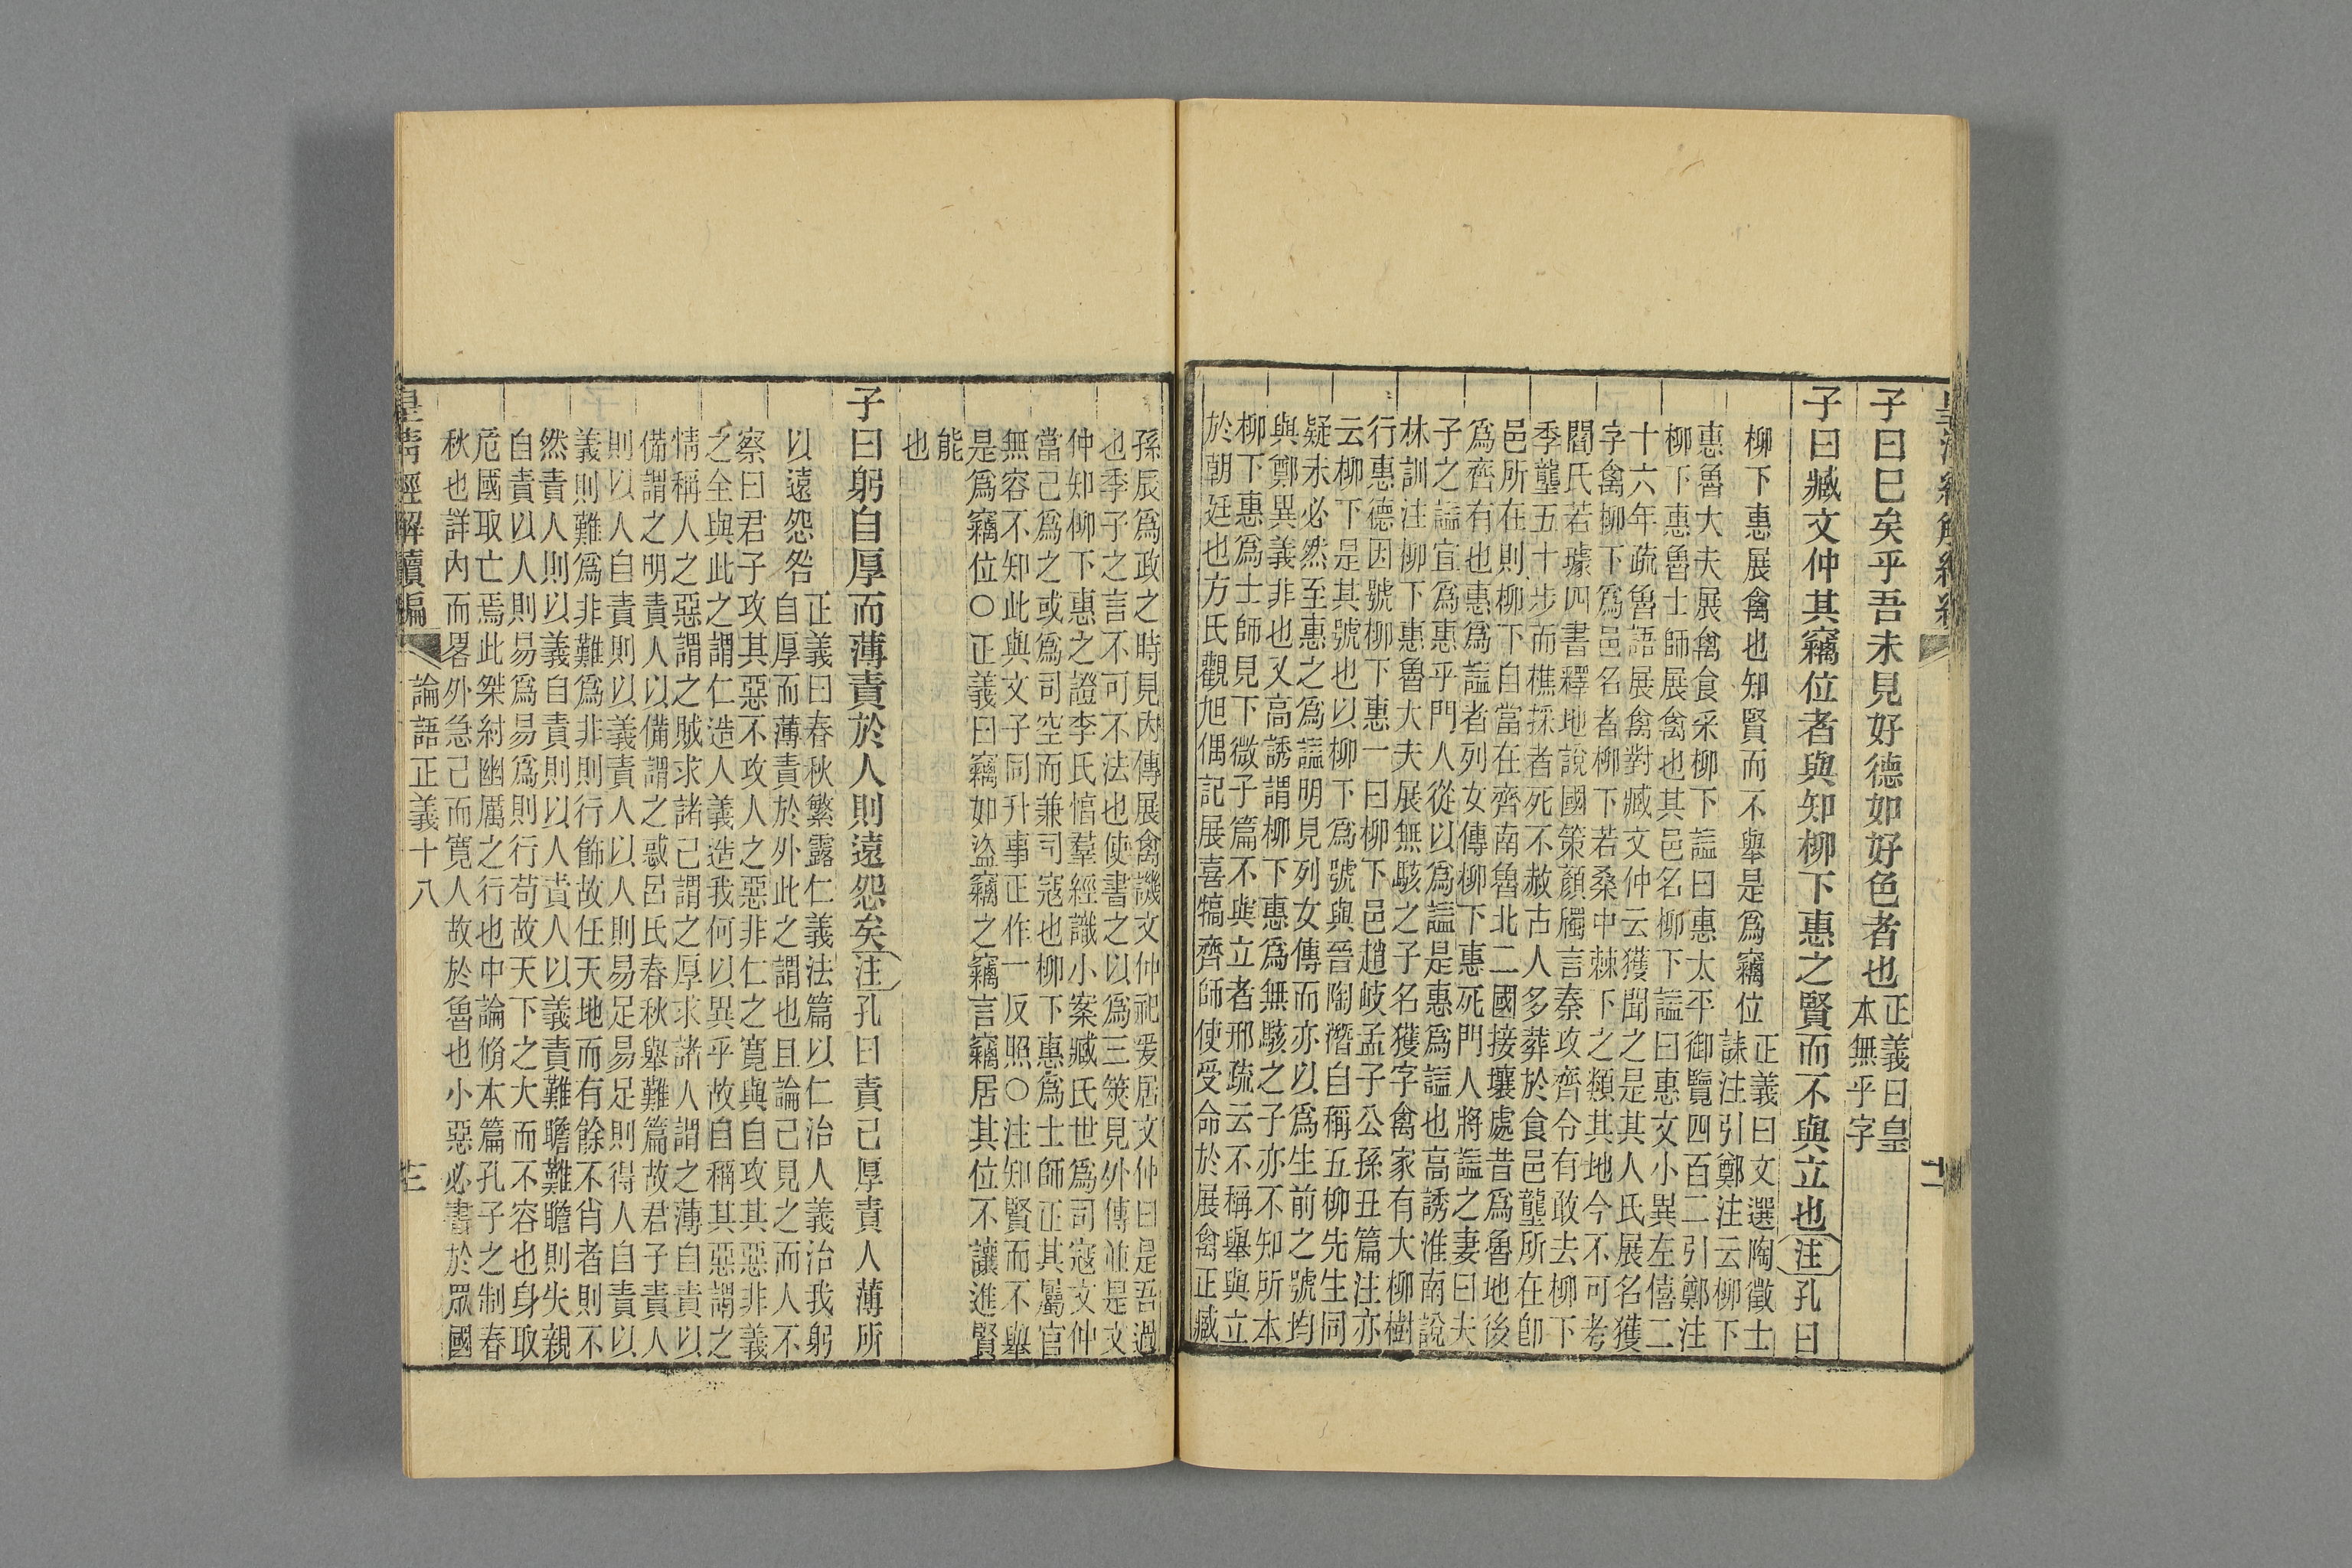 子曰巳矣乎吾未見好德如好色者也正義曰皇
本無乎字
子曰臧文仲其竊位者與知柳下惠之賢而不與立也注孔曰
柳下惠展禽也知賢而不舉是爲竊位正義曰文選陶徵士
誄注引鄭注云柳下
惠魯大夫展禽食采柳下諡曰惠太平御覽四百二引鄭注
柳下惠魯士師展禽也其邑名柳下諡曰惠文小異左僖二
十六年疏魯語展禽對臧文仲云獲聞之是其人氏展名獲
字禽柳下爲邑名者柳下若桑中棘下之類其地今不可考
閻氏若璩四書釋地說國策顏斶言秦攻齊令有敢去柳下
季壟五十步而樵採者死不赦古人多葬於食邑壟所在卽
邑所在則柳下自當在齊南魯北二國接壤處昔爲魯地後
爲齊有也惠爲諡者列女傳柳下惠死門人將諡之妻曰夫
子之諡宜爲惠乎門人從以爲諡是惠爲諡也高誘淮南說
林訓注柳下惠魯大夫展無駭之子名獲字禽家有大柳樹
行惠德因號柳下惠一曰柳下邑趙岐孟子公孫丑篇注亦
云柳下是其號也以柳下爲號與晉陶潛自稱五柳先生同
疑未必然至惠之爲諡明見列女傳而亦以爲生前之號均
與鄭異義非也又高誘謂柳下惠爲無駭之子亦不知所本
柳下惠爲士師見下微子篇不與立者邢疏云不稱舉與立
於朝廷也方氏觀旭偶記展喜犒齊師使受命於展禽正臧
孫辰爲政之時見內傳展禽譏文仲祀爰居文仲曰是吾過
也季子之言不可不法也使書之以爲三筴見外傳並是文
仲知柳下惠之證李氏惇羣經識小案臧氏世爲司寇文仲
當己爲之或爲司空而兼司寇也柳下惠爲士師正其屬官
無容不知此與文子同升事正作一反照○注知賢而不舉
是爲竊位○正義曰竊如盜竊之竊言竊居其位不讓進賢
能
也
子曰躬自厚而薄責於人則遠怨矣注孔曰責己厚責人薄所
以遠怨咎正義曰春秋繁露仁義法篇以仁治人義治我躬
自厚而薄責於外此之謂也且論己見之而人不
察曰君子攻其惡不攻人之惡非仁之寬與自攻其惡非義
之全與此之謂仁造人義造我何以異乎故自稱其惡謂之
情稱人之惡謂之賊求諸己謂之厚求諸人謂之薄自責以
備謂之明責人以備謂之惑呂氏春秋舉難篇故君子責人
則以人自責則以義責人以人則易足易足則得人自責以
義則難爲非難爲非則行飾故任天地而有餘不肖者則不
然責人則以義自責則以人責人以義責難瞻難瞻則失親
自責以人則易爲易爲則行苟故天下之大而不容也身取
危國取亡焉此桀紂幽厲之行也中論脩本篇孔子之制春
秋也詳內而畧外急己而寬人故於魯也小惡必書於眾國
皇清經解續編 論語正義十八